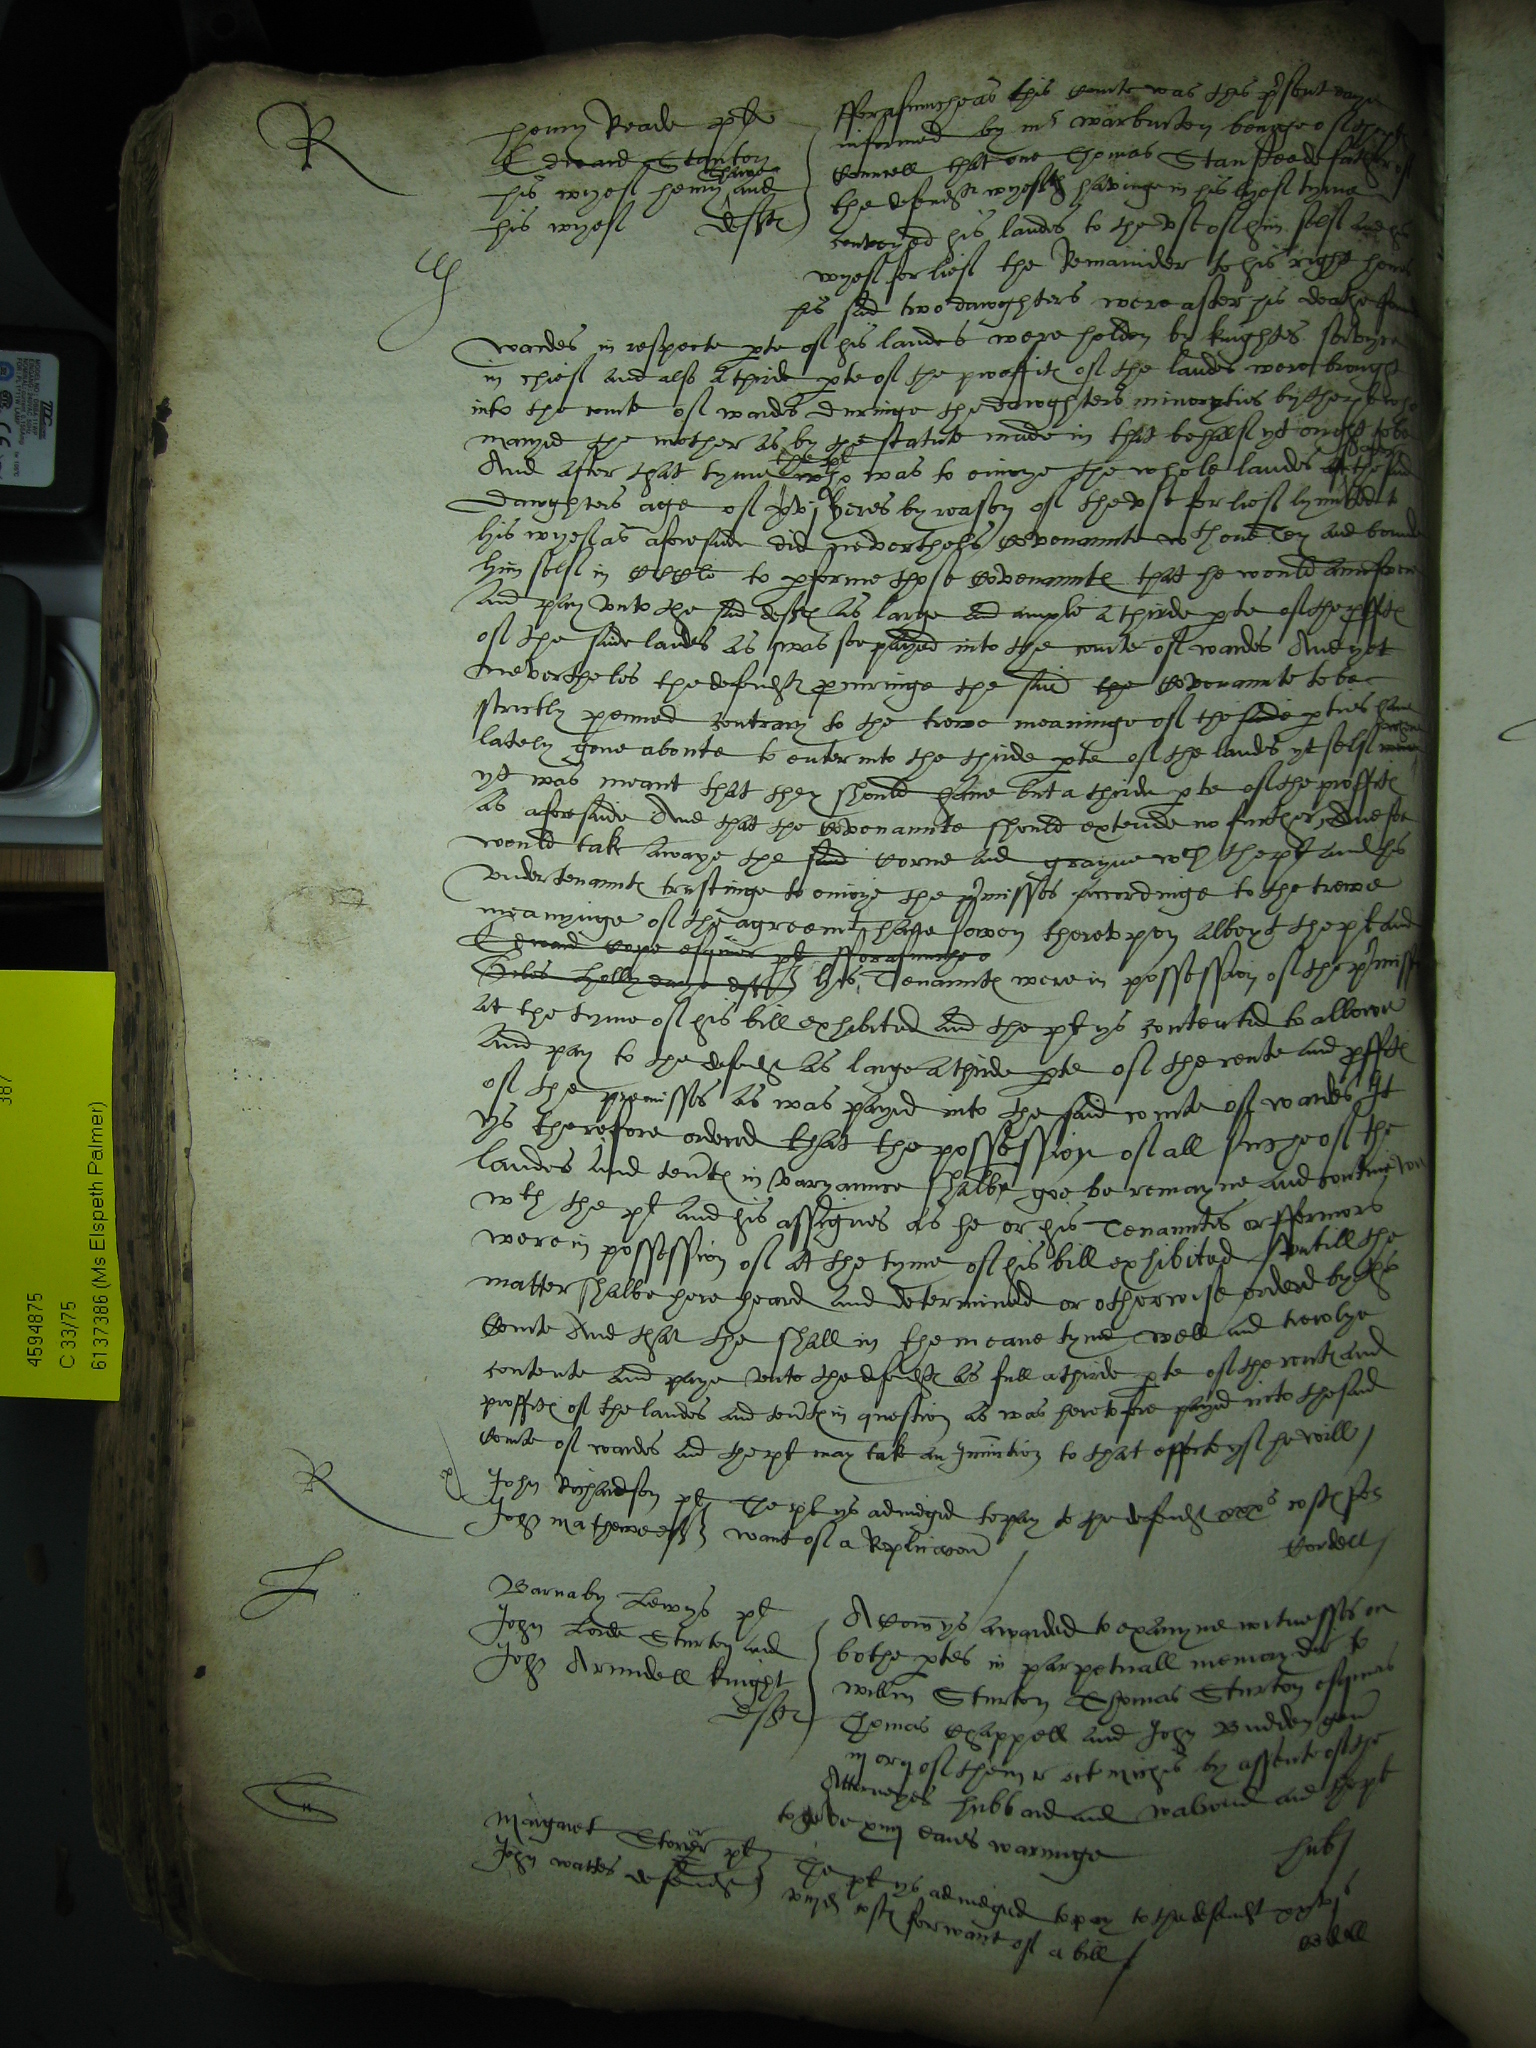 R
Henry Reade plt
Edward Stanton
his wyef henry Shawe and
his wyef deffts
fforasmuche as this Courte was this pñte daye
informed by mr warburton beinge of the plts
Councell that one Thomas Stanstead father of
the defendts wyefes havinge in his lyef tyme
conveyed his landes to the use of him self and his
wyef for lief the Remainder to his right heires
his said two dawghters were after his deathe
wardes in respecte pte of his landes were holden by knightes service
in chief and also a third pte of the proffitts of the landes were brought
into the courte of wardes duringe the dawghters minoryties by the plt who
maryed the mother as by the statute made in that behalf yt ought to be
And after that tyme the plt who was to enioye the whole landes at the said
dawghters age of xvj yeres by reason of the use for lief lymitted to
his wyef as aforesaide did neverthels Covenaunte wth one Tey and bounde
him self in CCCCli to pforme those Covenauntes that he would annswere
and pay unto the said deffts as large and ample a thirde pte of the pffitts
of the saide landes as was soe payed into the courte of wardes And yet
neverthelles the defendts pcuringe the said the Covenaunte to be
strictly penned contrary to the trewe meaninge of the saide pties have
lately gone aboute to enter into the thirde pte of the landes yt self
yt was meant that they should have but a thirde pte of the proffitts
as aforesaide And that the Covenaunte should extende no further And soe
would take awaye the said Corne and grayne wch the plt and his
undertenaunts trustinge to enioye the pmisses accordinge to the trewe
meanyinge of the agreemt have sowen thereupon Albeyt the plt and
Edward Cope esquier plt fforasmuche
Giles Hollydaye defft his Tenaunts were in possession of the pmisses
at the tyme of his bill exhibited and the plt ys contented to allowe
and pay to the defendts as large a thirde pte of the rente and pffitts
of the premisses as was payed into the said courte of wardes It
ys therefore ordered that the possession of all suche of the
landes and tents in varyaunce shalbe goe be remayne and contynue
wth the plt and his assignes as he or his Tenaunts or ffermors
were in possession of at the tyme of his bill exhibited untill the
matter shalbe here heard and determined or otherwise ordered by this
Courte And that the shall in the meane tyme well and trewlye
contente and paye unto the defendts as full a thirde pte of the rents and
proffitts of the landes and tents in question as was heretofore payed into the said
Courte of wardes and the plt may take an Iniunction to that effecte yf he will
R
John Richardson plt
John Mathewe defft
The plt ys adiudged to pay to the defendt xxxs costs for
want of a Replicacon
Cordell
L
Barnaby Lewys plt
John Lorde Sturton and
John Arundell knight
deffts
A Comys awarded to examyne witnesses on
bothe ptes in parpetuall memory dir to
willm Sturton Thomas Sturton esquiers
Thomas Chappell and John Budden gent
iij or ij of them r oct Michis by assente of the
Attorneyes Hubbard and walrond and the plt
to geve xiiij daies warninge
Hub
Margaret Storer plt
John wattes defendt
The plt ys adiudged to pay to the defendt
viijd costs for want of a bill
Cordell
4594875
C 33/75
6137386 (Ms Elspeth Palmer)
387